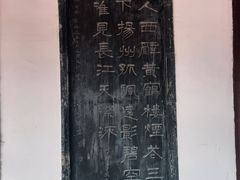 人西辭黃鶴樓煙花三
下揚州孤帆遠影碧空
見長江天際流